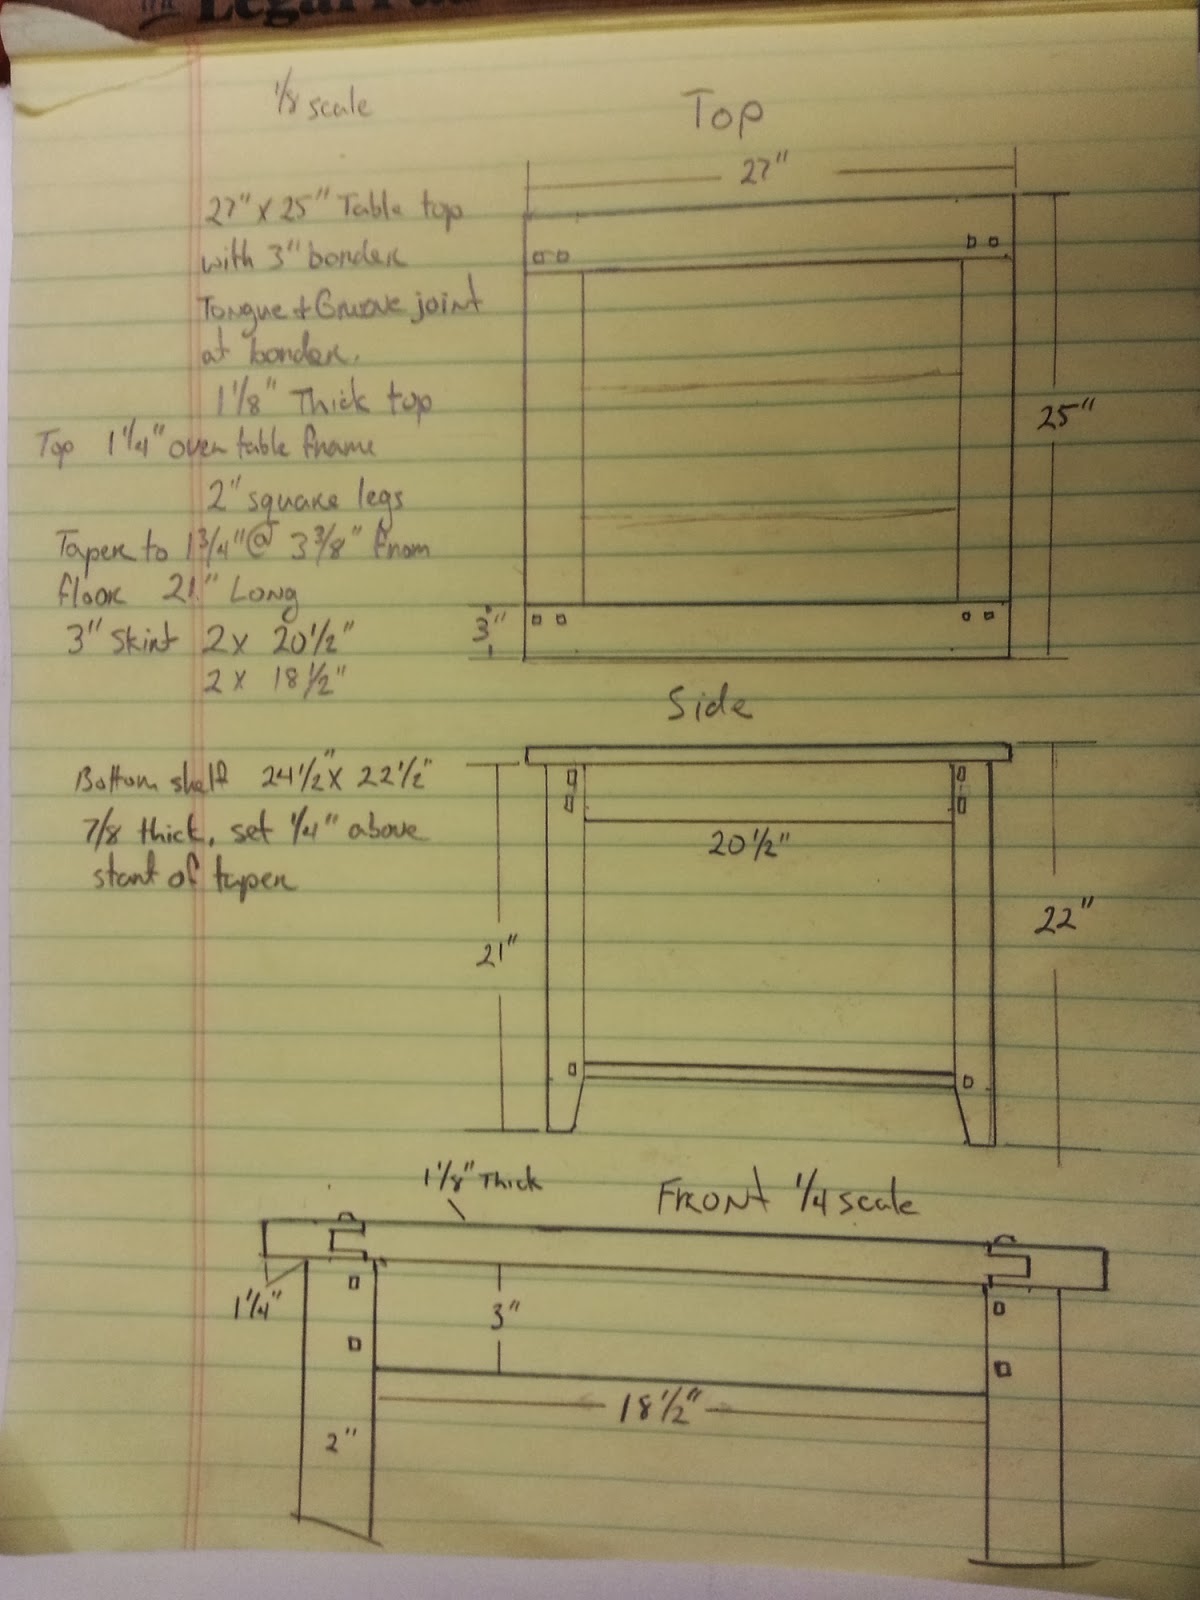 1/8 scale
Top
27"
27" x 25" Table top
with 3" border
Tongue & Groove joint
at border.
1 1/8" Thick top
Top 1 1/4" over table frame
2" square legs
Taper to 1 3/4" @ 3 3/8" from
floor 21" Long
3" Skirt 2 x 20 1/2"
2 x 18 1/2"
25"
3"
Side
Bottom shelf 24 1/2" x 22 1/2"
7/8 thick, set 1/4" above
start of taper
20 1/2"
21"
22"
1 1/8" Thick
FRONT 1/4 scale
1 1/4"
3"
18 1/2"
2"